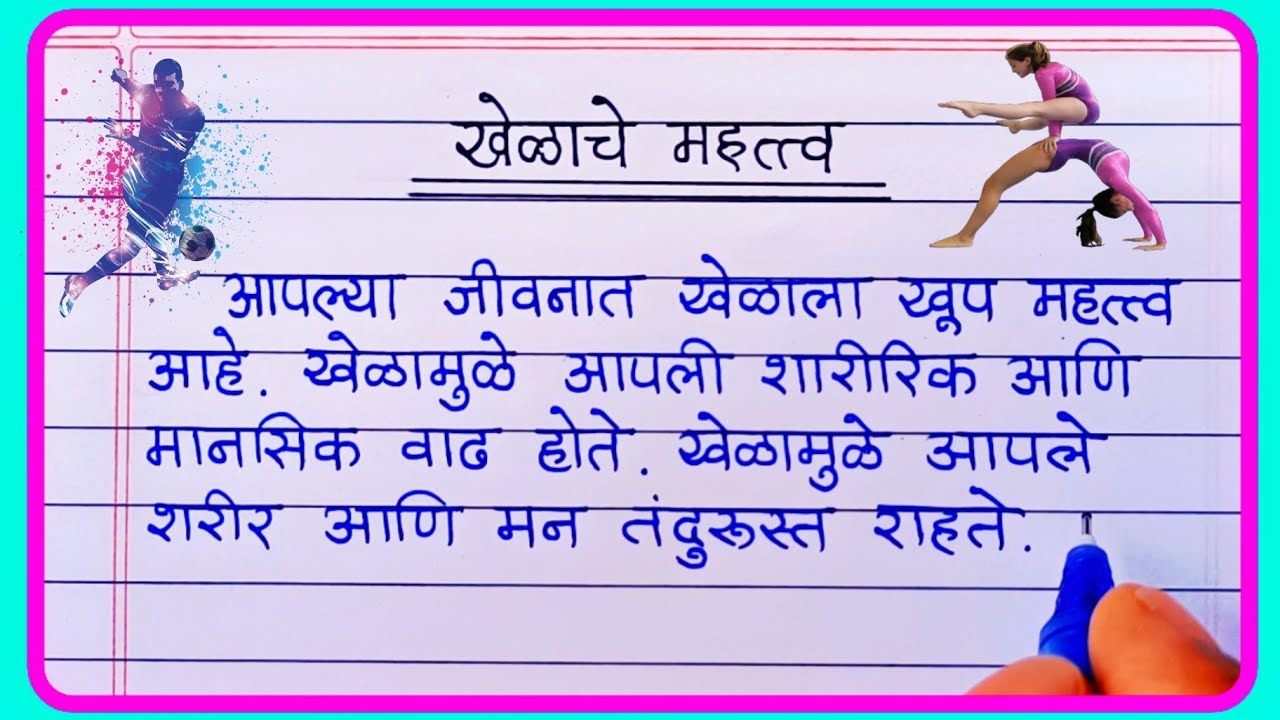 खेळाचे महत्त्व
आपल्या जीवनात खेळाला खूप महत्त्व
आहे. खेळामुळे आपली शारीरिक आणि
मानसिक वाढ होते. खेळामुळे आपले
शरीर आणि मन तंदुरूस्त राहते.